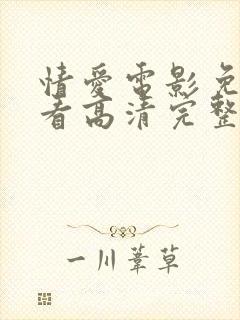 情爱电影免
看高清完整
一川葦草